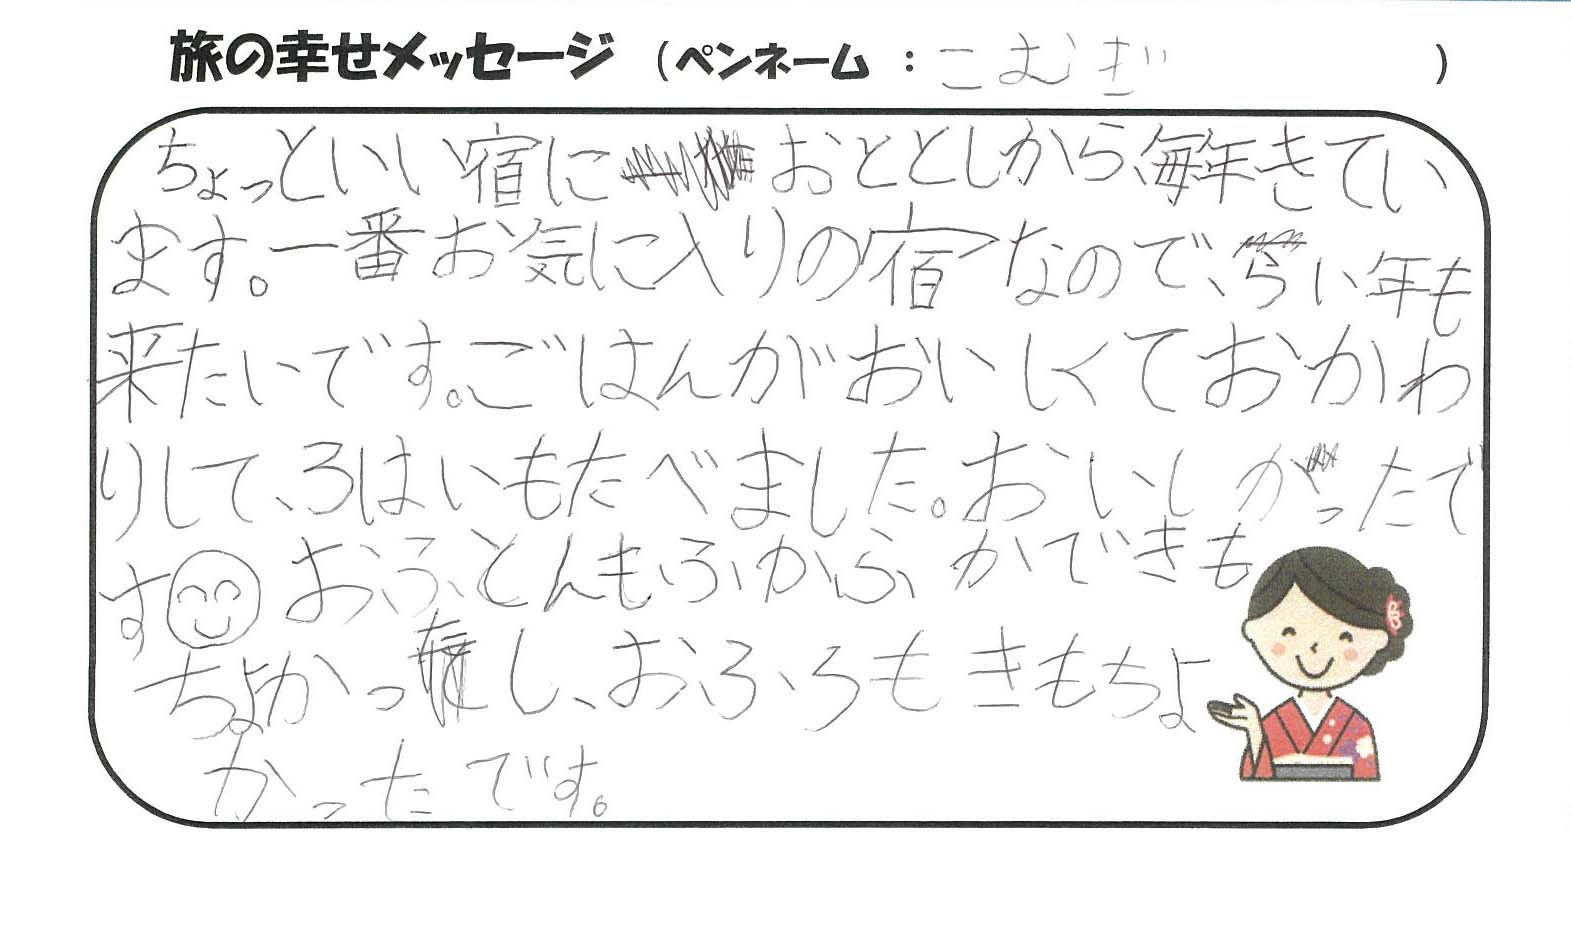 旅の幸せメッセージ (ペンネーム : こむぎ )
ちょっといい宿におととしから、毎年きてい
ます。一番お気に入りの宿なので、らい年も
来たいです。ごはんがおいしくておかわ
りして、3ばいもたべました。おいしかったで
す おふとんもふかふかできも
ちよかったし、おふろもきもちよ
かったです。